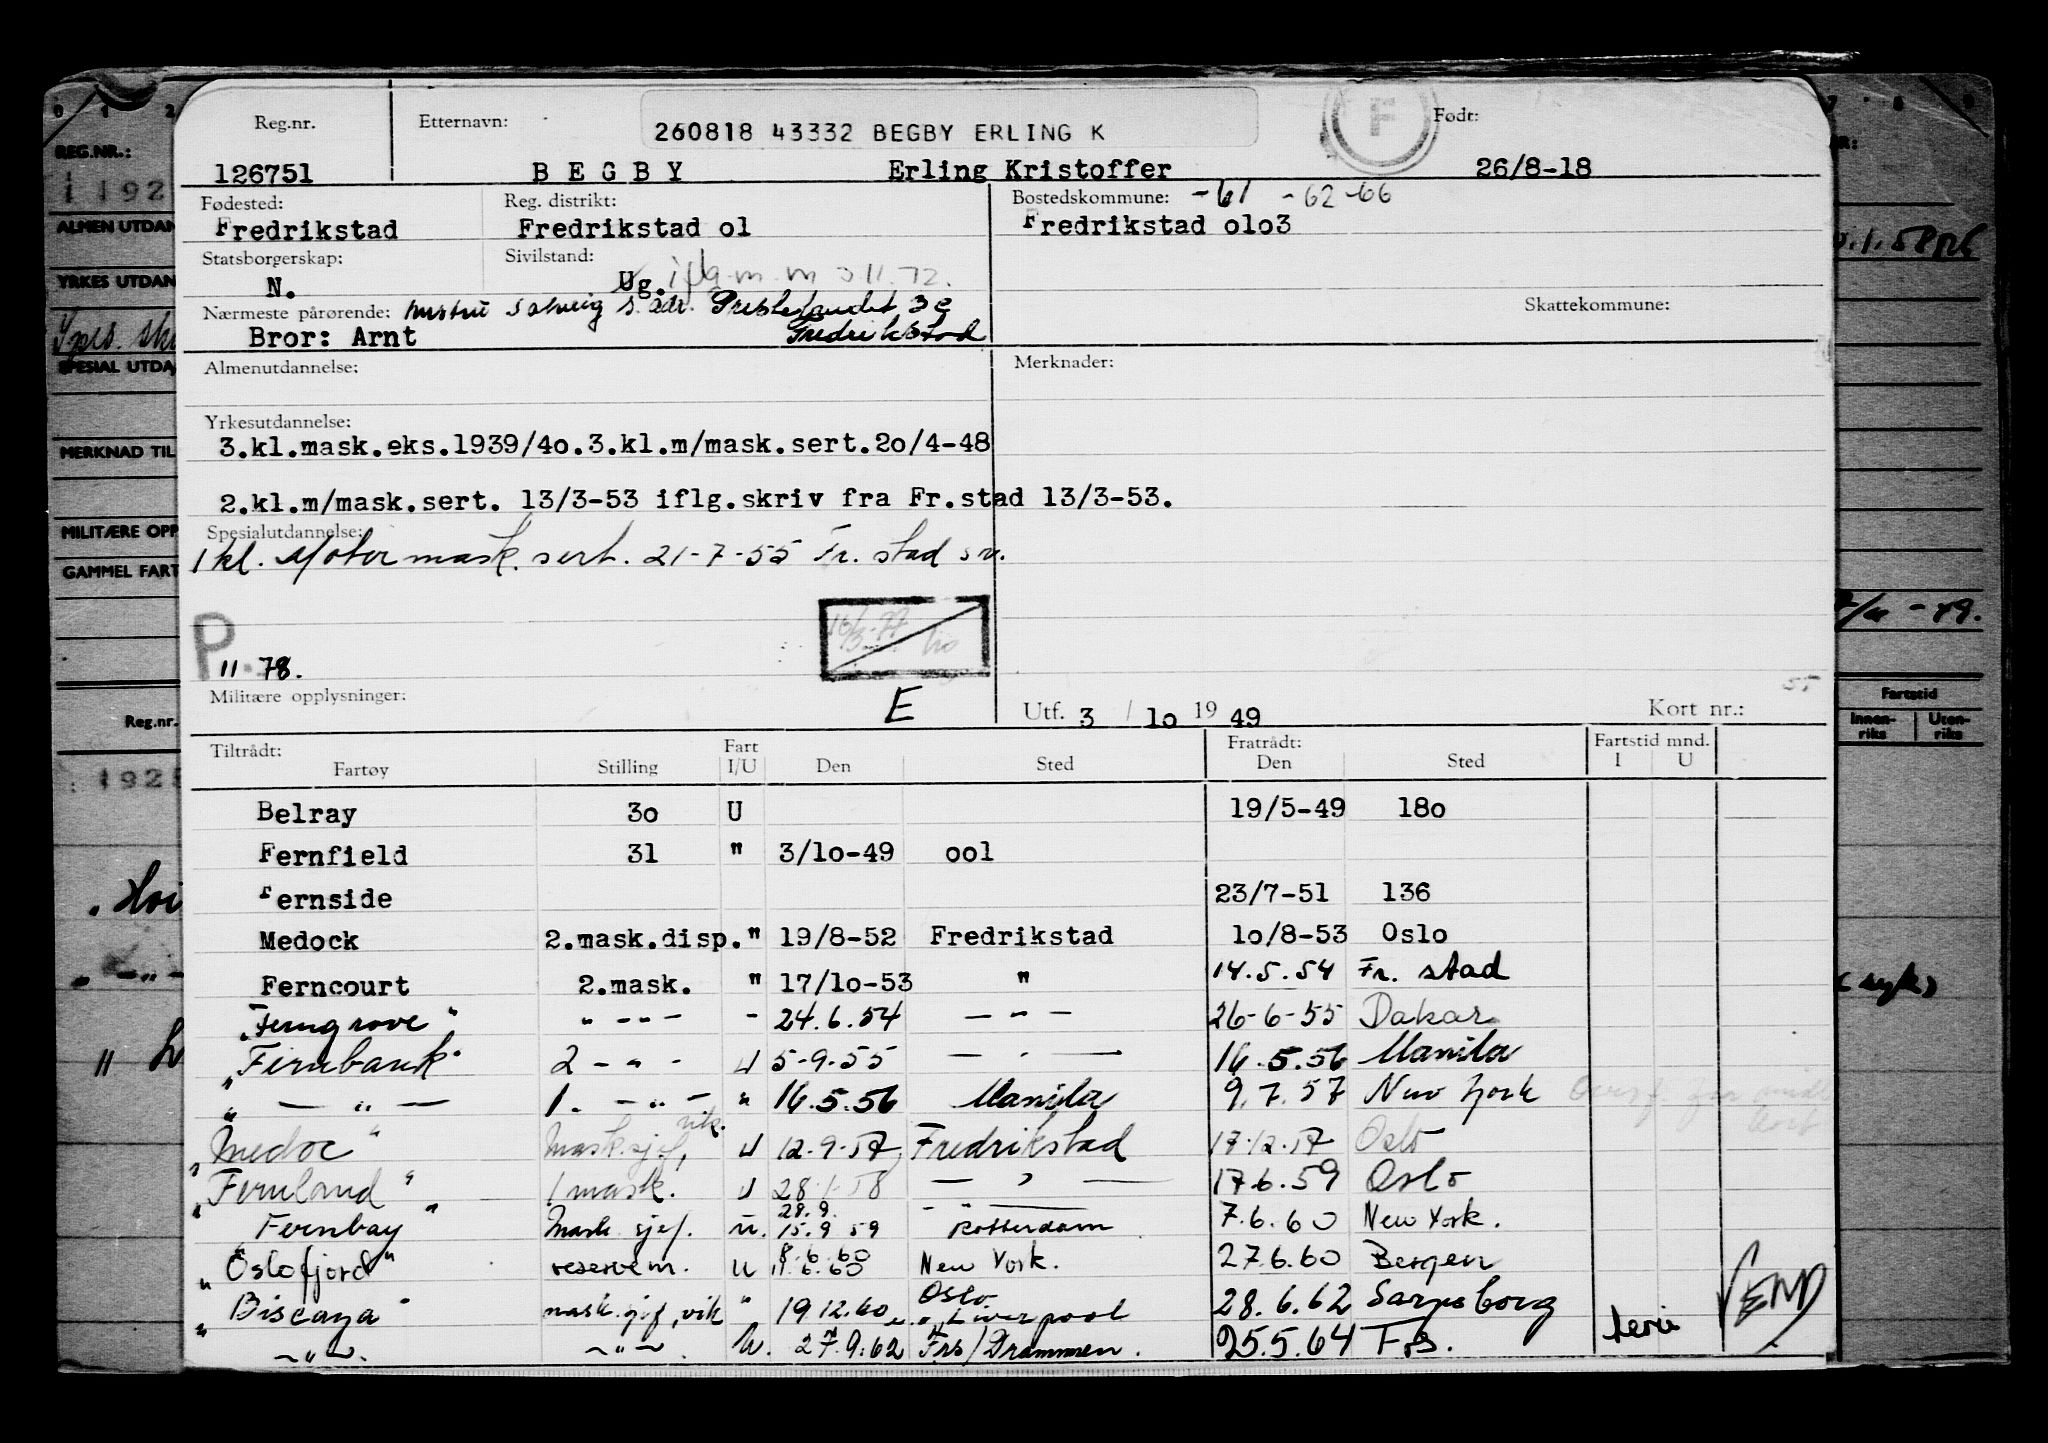 Reg.nr. Etternavn: 260818 43332 BEGBY ERLING K F Født:
126751 BEGBY Erling Kristoffer 26/8-18
Fødested: Reg. distrikt: Bostedskommune: -61 -62-66
Fredrikstad Fredrikstad o1 Fredrikstad o1o3
Statsborgerskap: Sivilstand:
N. Ug. 3 11.72.
Nærmeste pårørende: Hustru Solveig S. adr. Prestelandet 3c Skattekommune:
Bror: Arnt Fredrikstad
Almenutdannelse: Merknader:
Yrkesutdannelse:
3.kl.mask.eks.1939/4o.3.kl.m/mask.sert.2o/4-48
2.kl.m/mask.sert. 13/3-53 iflg.skriv fra Fr.stad 13/3-53.
Spesialutdannelse:
1 kl. Motor mask. sert. 21-7-55 Fr. stad
P.
11 78.
Militære opplysninger: E Utf. 3 / 1o 19 49 Kort nr.:
Tiltrådt: Fart Fratrådt: Fartstid mnd.
Fartøy Stilling I/U Den Sted Den Sted I U
Belray 3o U 19/5-49 18o
Fernfield 31 " 3/1o-49 oo1
Fernside 23/7-51 136
Medock 2.mask.disp." 19/8-52 Fredrikstad 1o/8-53 Oslo
Ferncourt 2.mask. " 17/1o-53 " 14.5.54 Fr. stad
"Ferngrove" " -"- - 24.6.54 - " - 26-6-55 Dakar
"Fernbank" 2 - " - U 5-9-55 - " - 16.5.56 Manila
" - " - 1. - " - " 16.5.56 Manila 9.7.57 New York
"Medoc" Mask.sjef, vik. U 12-9-57 Fredrikstad 17-12-57 Oslo
"Fernland" 1 mask. U 28-1-58 - " - 17.6.59 Oslo
"Fernbay" Mask sjef. u. 28.9. 15.9 59 - " - Rotterdam 7.6.60 New York.
"Oslofjord" reservem. u 8.6.60 11.6.60 New York. 27.6.60 Bergen
"Biscaya" mask.sjef, vik " 19 12.60 Oslo Liverpool 28.6.62 Sarpsborg
- " - . - " - . U. 27.9.62 Frs/Drammen. 25.5.64 F.s.
VEND
REG.NR.:
ALMEN UTDAN
YRKES UTDAN
SPESIAL UTDA
MERKNAD TIL
MILITÆRE OPP
GAMMEL FART
Reg.nr.
Fartstid
Innen-riks Uten-riks